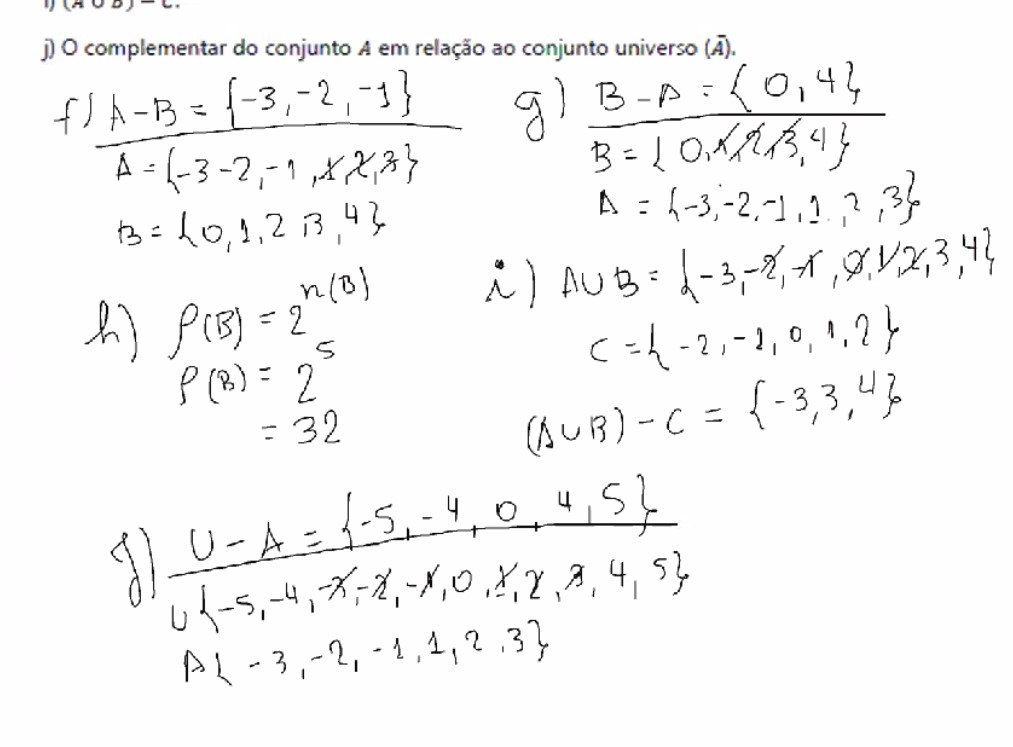 i) (A ∪ B) − C.
j) O complementar do conjunto A em relação ao conjunto universo (Ā).
f) A - B = {-3, -2, -1}
A = {-3 -2, -1, 1, 2, 3}
B = {0, 1, 2 3, 4}
g) B - A = {0, 4}
B = {0, 1, 2, 3, 4}
A = {-3, -2, -1, 1, 2, 3}
h) P(B) = 2^n(B)
P(B) = 2^5
= 32
i) A∪B = {-3, -2, -1, 0, 1, 2, 3, 4}
C = {-2, -1, 0, 1, 2}
(A∪B) - C = {-3, 3, 4}
j) U - A = {-5, -4, 0, 4, 5}
U{-5, -4, -3, -2, -1, 0, 1, 2, 3, 4, 5}
A{-3, -2, -1, 1, 2, 3}